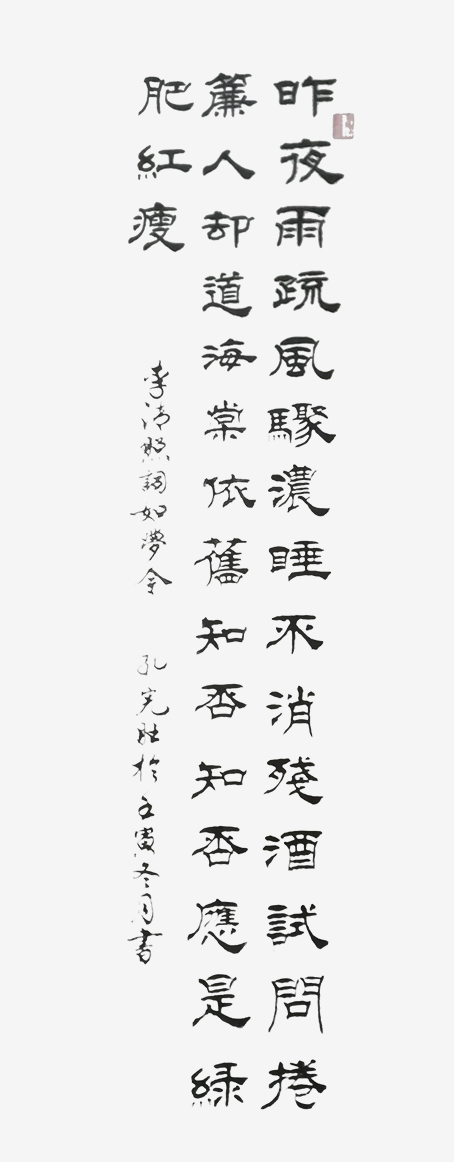 昨夜雨疏風驟濃睡不消殘酒試問捲
簾人却道海棠依舊知否知否應是緑
肥紅瘦
李清照詞如夢令 孔憲肚於壬寅冬月書